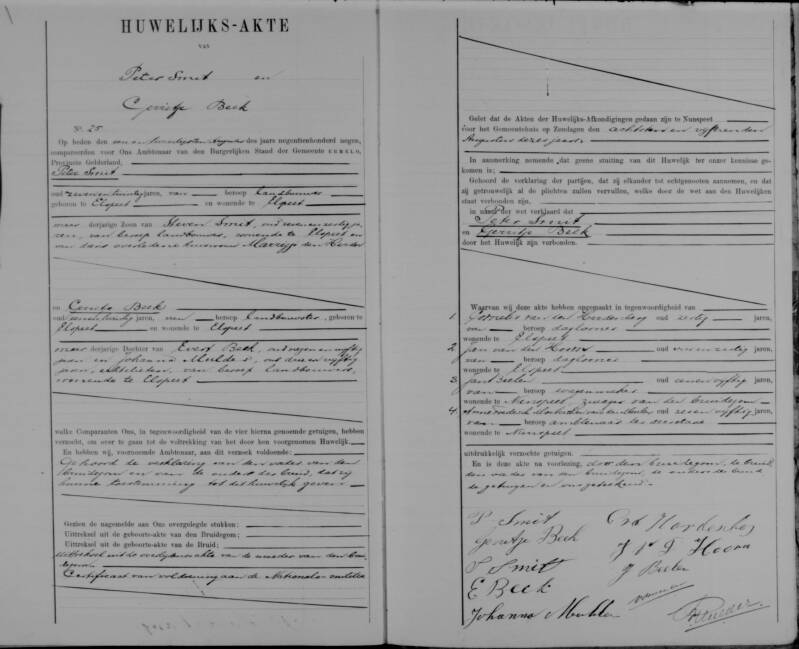 HUWELIJKS-AKTE
VAN
Peter Smit en
Gerritje Beek
N°. 25.
Op heden den een en twintigsten Augustus des jaars negentienhonderd negen,
compareerden voor Ons Ambtenaar van den Burgerlijken Stand der Gemeente ERMELO,
Provincie Gelderland,
Peter Smit
oud zevenentwintig jaren, van beroep Landbouwer
geboren te Elspeet en wonende te Elspeet
meerderjarige Zoon van Steven Smit, oud zevenenzestig ja-
ren, van beroep landbouwer, wonende te Elspeet en
van diens overledene huisvrouw Marretje den Herder
en Gerritje Beek
oud eenentwintig jaren, van beroep Landbouwster, geboren te
Elspeet en wonende te Elspeet
meerderjarige Dochter van Evert Beek, oud negenenvijftig
jaren en Johanna Mulder, oud drieenvijftig
jaren, echtelieden, van beroep landbouwers,
wonende te Elspeet
welke Comparanten Ons, in tegenwoordigheid van de vier hierna genoemde getuigen, hebben
verzocht, om over te gaan tot de voltrekking van het door hen voorgenomen Huwelijk.
En hebben wij, voornoemde Ambtenaar, aan dit verzoek voldoende:
Gehoord de verklaring van den vader van den
bruidegom en van de ouders der bruid, dat zij
hunne toestemming tot dit huwelijk geven
Gezien de nagemelde aan Ons overgelegde stukken:
Uittreksel uit de geboorte-akte van den Bruidegom:
Uittreksel uit de geboorte-akte van de Bruid:
Uittreksel uit de overlijdensakte van de moeder van den bru-
degom:
Certificaat van voldoening aan de Nationale militie
Gelet dat de Akten der Huwelijks-Afkondigingen gedaan zijn te Nunspeet
voor het Gemeentehuis op Zondagen den achtsten en vijftienden
Augustus dezes jaars
In aanmerking nemende, dat geene stuiting van dit Huwelijk ter onzer kennisse ge-
komen is;
Gehoord de verklaring der partijen, dat zij elkander tot echtgenooten aannemen, en dat
zij getrouwelijk al de plichten zullen vervullen, welke door de wet aan den Huwelijken
staat verbonden zijn,
in naam der wet verklaard dat
Peter Smit
en Gerritje Beek
door het Huwelijk zijn verbonden.
Waarvan wij deze akte hebben opgemaakt in tegenwoordigheid van
1. oud zestig jaren,
van beroep daglooner
wonende te Elspeet
2. Jan van den Hoorn oud jaren,
van beroep daglooner
wonende te Elspeet
3. Jan Beelen oud eenenvijftig jaren,
van beroep wagenmaker
wonende te Nunspeet, zwager van den bruidegom
4. oud zesenvijftig jaren,
van beroep ambtenaar ter secretarie
wonende te Nunspeet
uitdrukkelijk verzochte getuigen.
En is deze akte na voorlezing, door den bruidegom, de bruid,
den vader van den bruidegom, de ouders der bruid
de getuigen en ons geteekend.
P Smit
Gerritje Beek
S Smit
E Beek
Johanna Mulder
J v D Hoorn
J Beelen